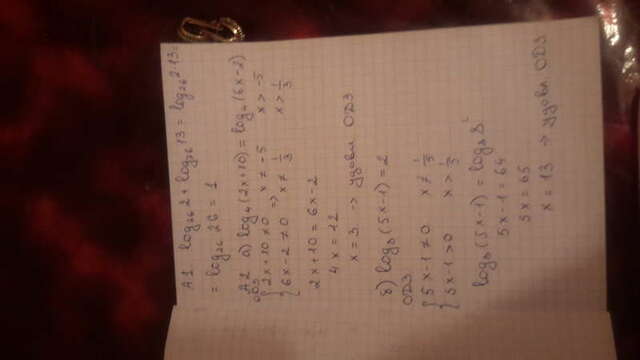 А1. log₂₆ 2 + log₂₆ 13 = log₂₆ 2·13 =
= log₂₆ 26 = 1
А2 а) log₄ (2x+10) = log₄ (6x-2)
ОДЗ
{ 2x+10 ≠ 0 ⇒ x ≠ -5 x > -5
{ 6x-2 ≠ 0 x ≠ 1/3 x > 1/3
2x+10 = 6x-2
4x = 12
x = 3 → удовл. ОДЗ
б) log₈ (5x-1) = 2
ОДЗ
{ 5x-1 ≠ 0 x ≠ 1/5
{ 5x-1 > 0 x > 1/5
log₈ (5x-1) = log₈ 8²
5x-1 = 64
5x = 65
x = 13 → удовл. ОДЗ